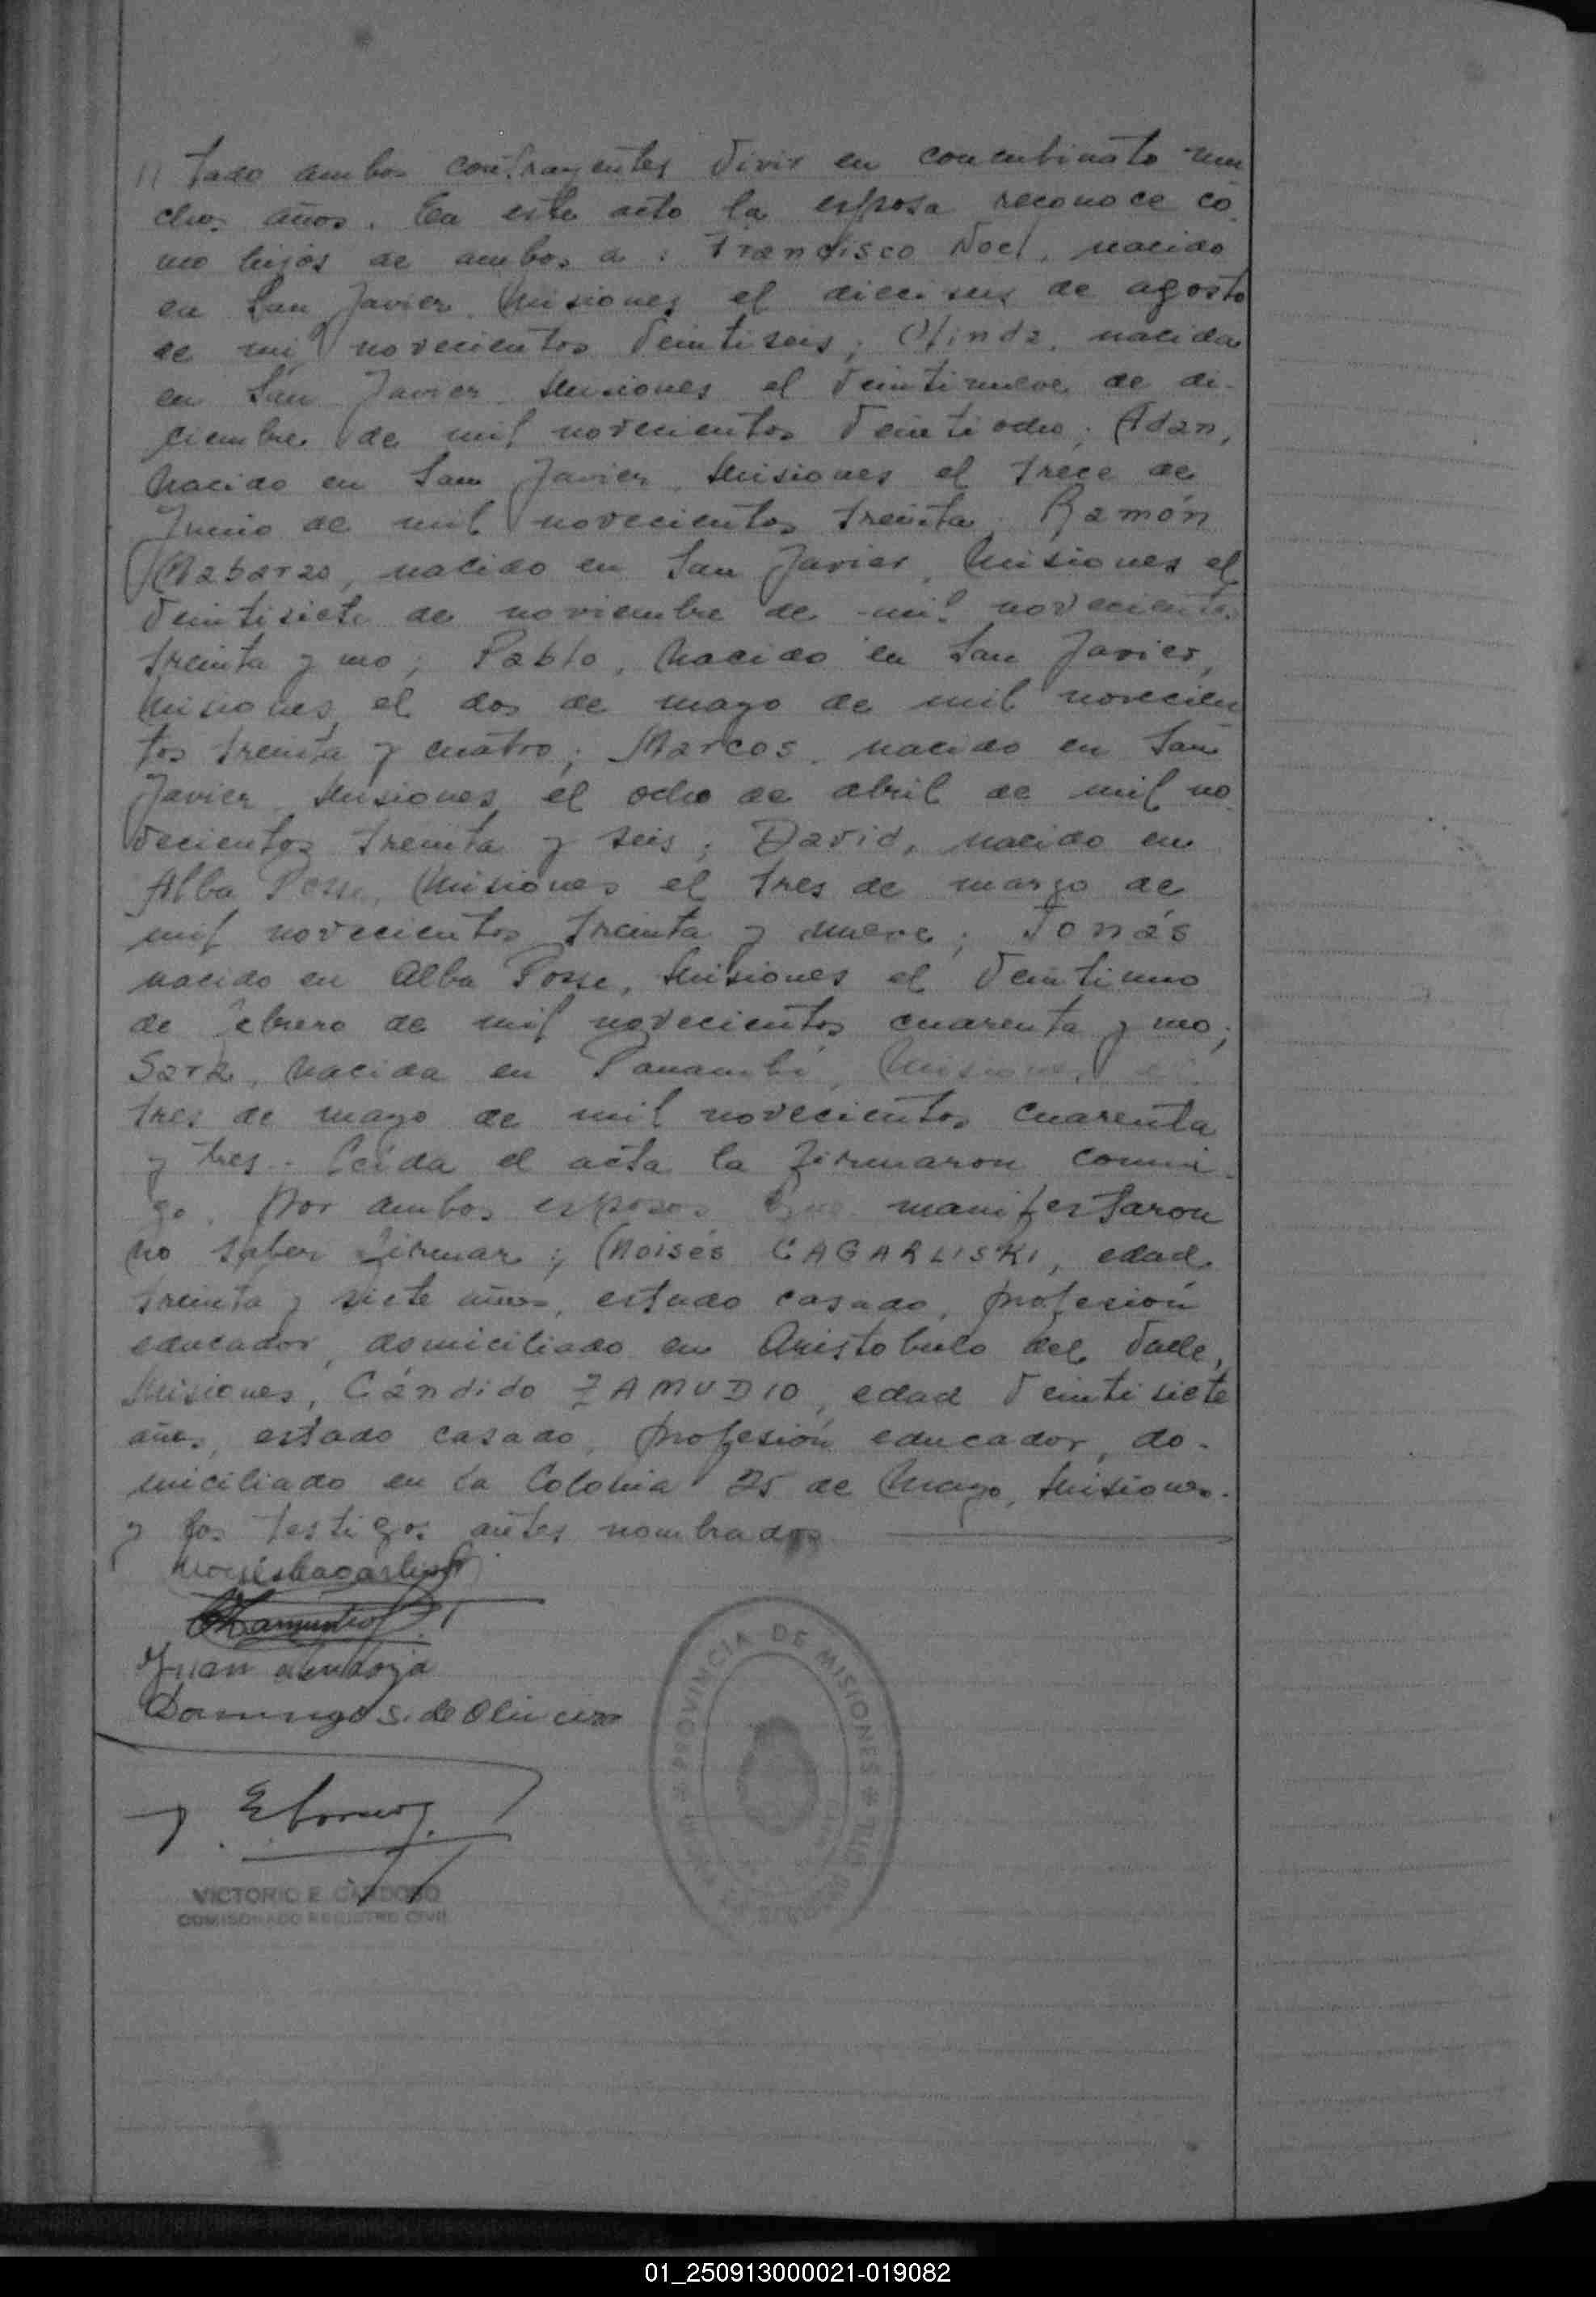 // tado ambos contrayentes vivir en concubinato mu
chos años. En este acto la esposa reconoce co
mo hijos de ambos a: Francisco Noel, nacido
en San Javier, Misiones el dieciseis de agosto
de mil novecientos veintiseis; Olinda, nacida
en San Javier Misiones el veintinueve de di-
ciembre de mil novecientos veintiocho; Adan,
nacido en San Javier, Misiones el trece de
Junio de mil novecientos treinta; Ramón
nacido en San Javier, Misiones el
veintisiete de noviembre de mil novecientos
treinta y uno; Pablo, nacido en San Javier,
Misiones el dos de mayo de mil novecien
tos treinta y cuatro; Marcos, nacido en San
Javier Misiones el ocho de abril de mil no
vecientos treinta y seis; David, nacido en
Alba Posse, Misiones el tres de marzo de
mil novecientos treinta y nueve; Jonás
nacido en Alba Posse, Misiones el veintiuno
de febrero de mil novecientos cuarenta y uno;
Sara, nacida en Panambí, Misiones el
tres de mayo de mil novecientos cuarenta
y tres. Leída el acta la firmaron conmi-
go, por ambos esposos que manifestaron
no saber firmar; Moisés CAGARLISKI, edad
treinta y siete años, estado casado, profesión
educador, domiciliado en Aristobulo del Valle,
Misiones, Cándido ZAMUDIO, edad veintisiete
años, estado casado, profesión educador, do-
miciliado en la Colonia 25 de Mayo, Misiones.
y los testigos antes nombrados
Moisés Cagarliski
CZamudio
Juan Mendoza
Domingo S. de Oliveira
VICTORIO E. CARDOSO
COMISIONADO REGISTRO CIVIL
PROVINCIA DE MISIONES
01_250913000021-019082